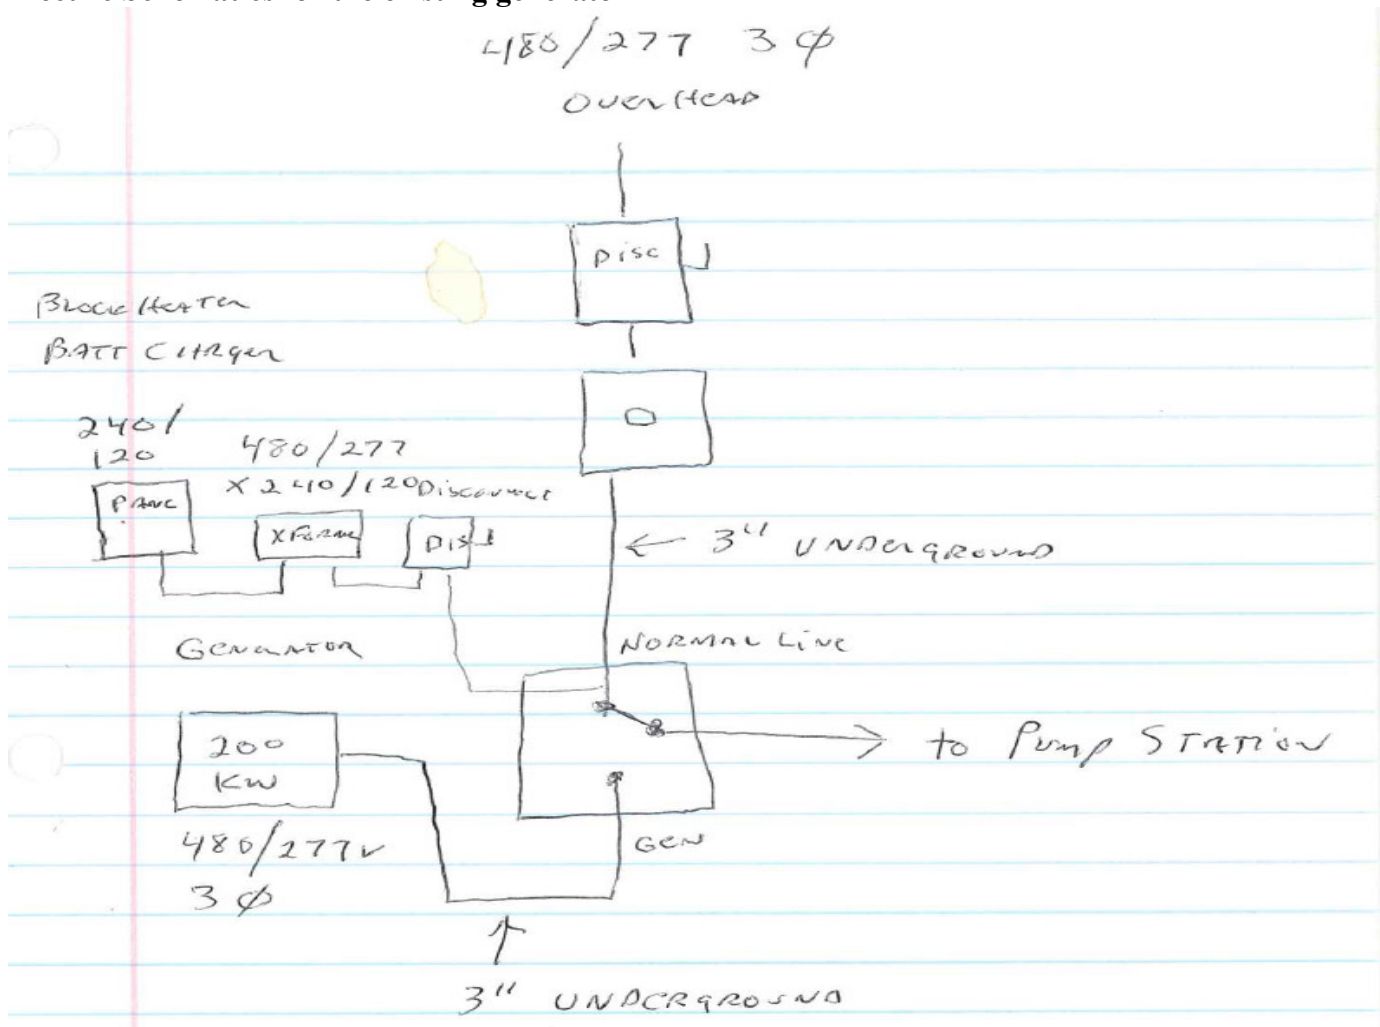 480/277 3 Ø
OVERHEAD
DISC
BLOCK HEATER
BATT CHRGER
240/
120
480/277
X 240/120 Disconnect
PANL
XFORM
DIS
← 3" UNDERGROUND
GENERATOR
NORMAL LINE
200
KW
to PUMP STATION
480/277V
GEN
3 Ø
3" UNDERGROUND